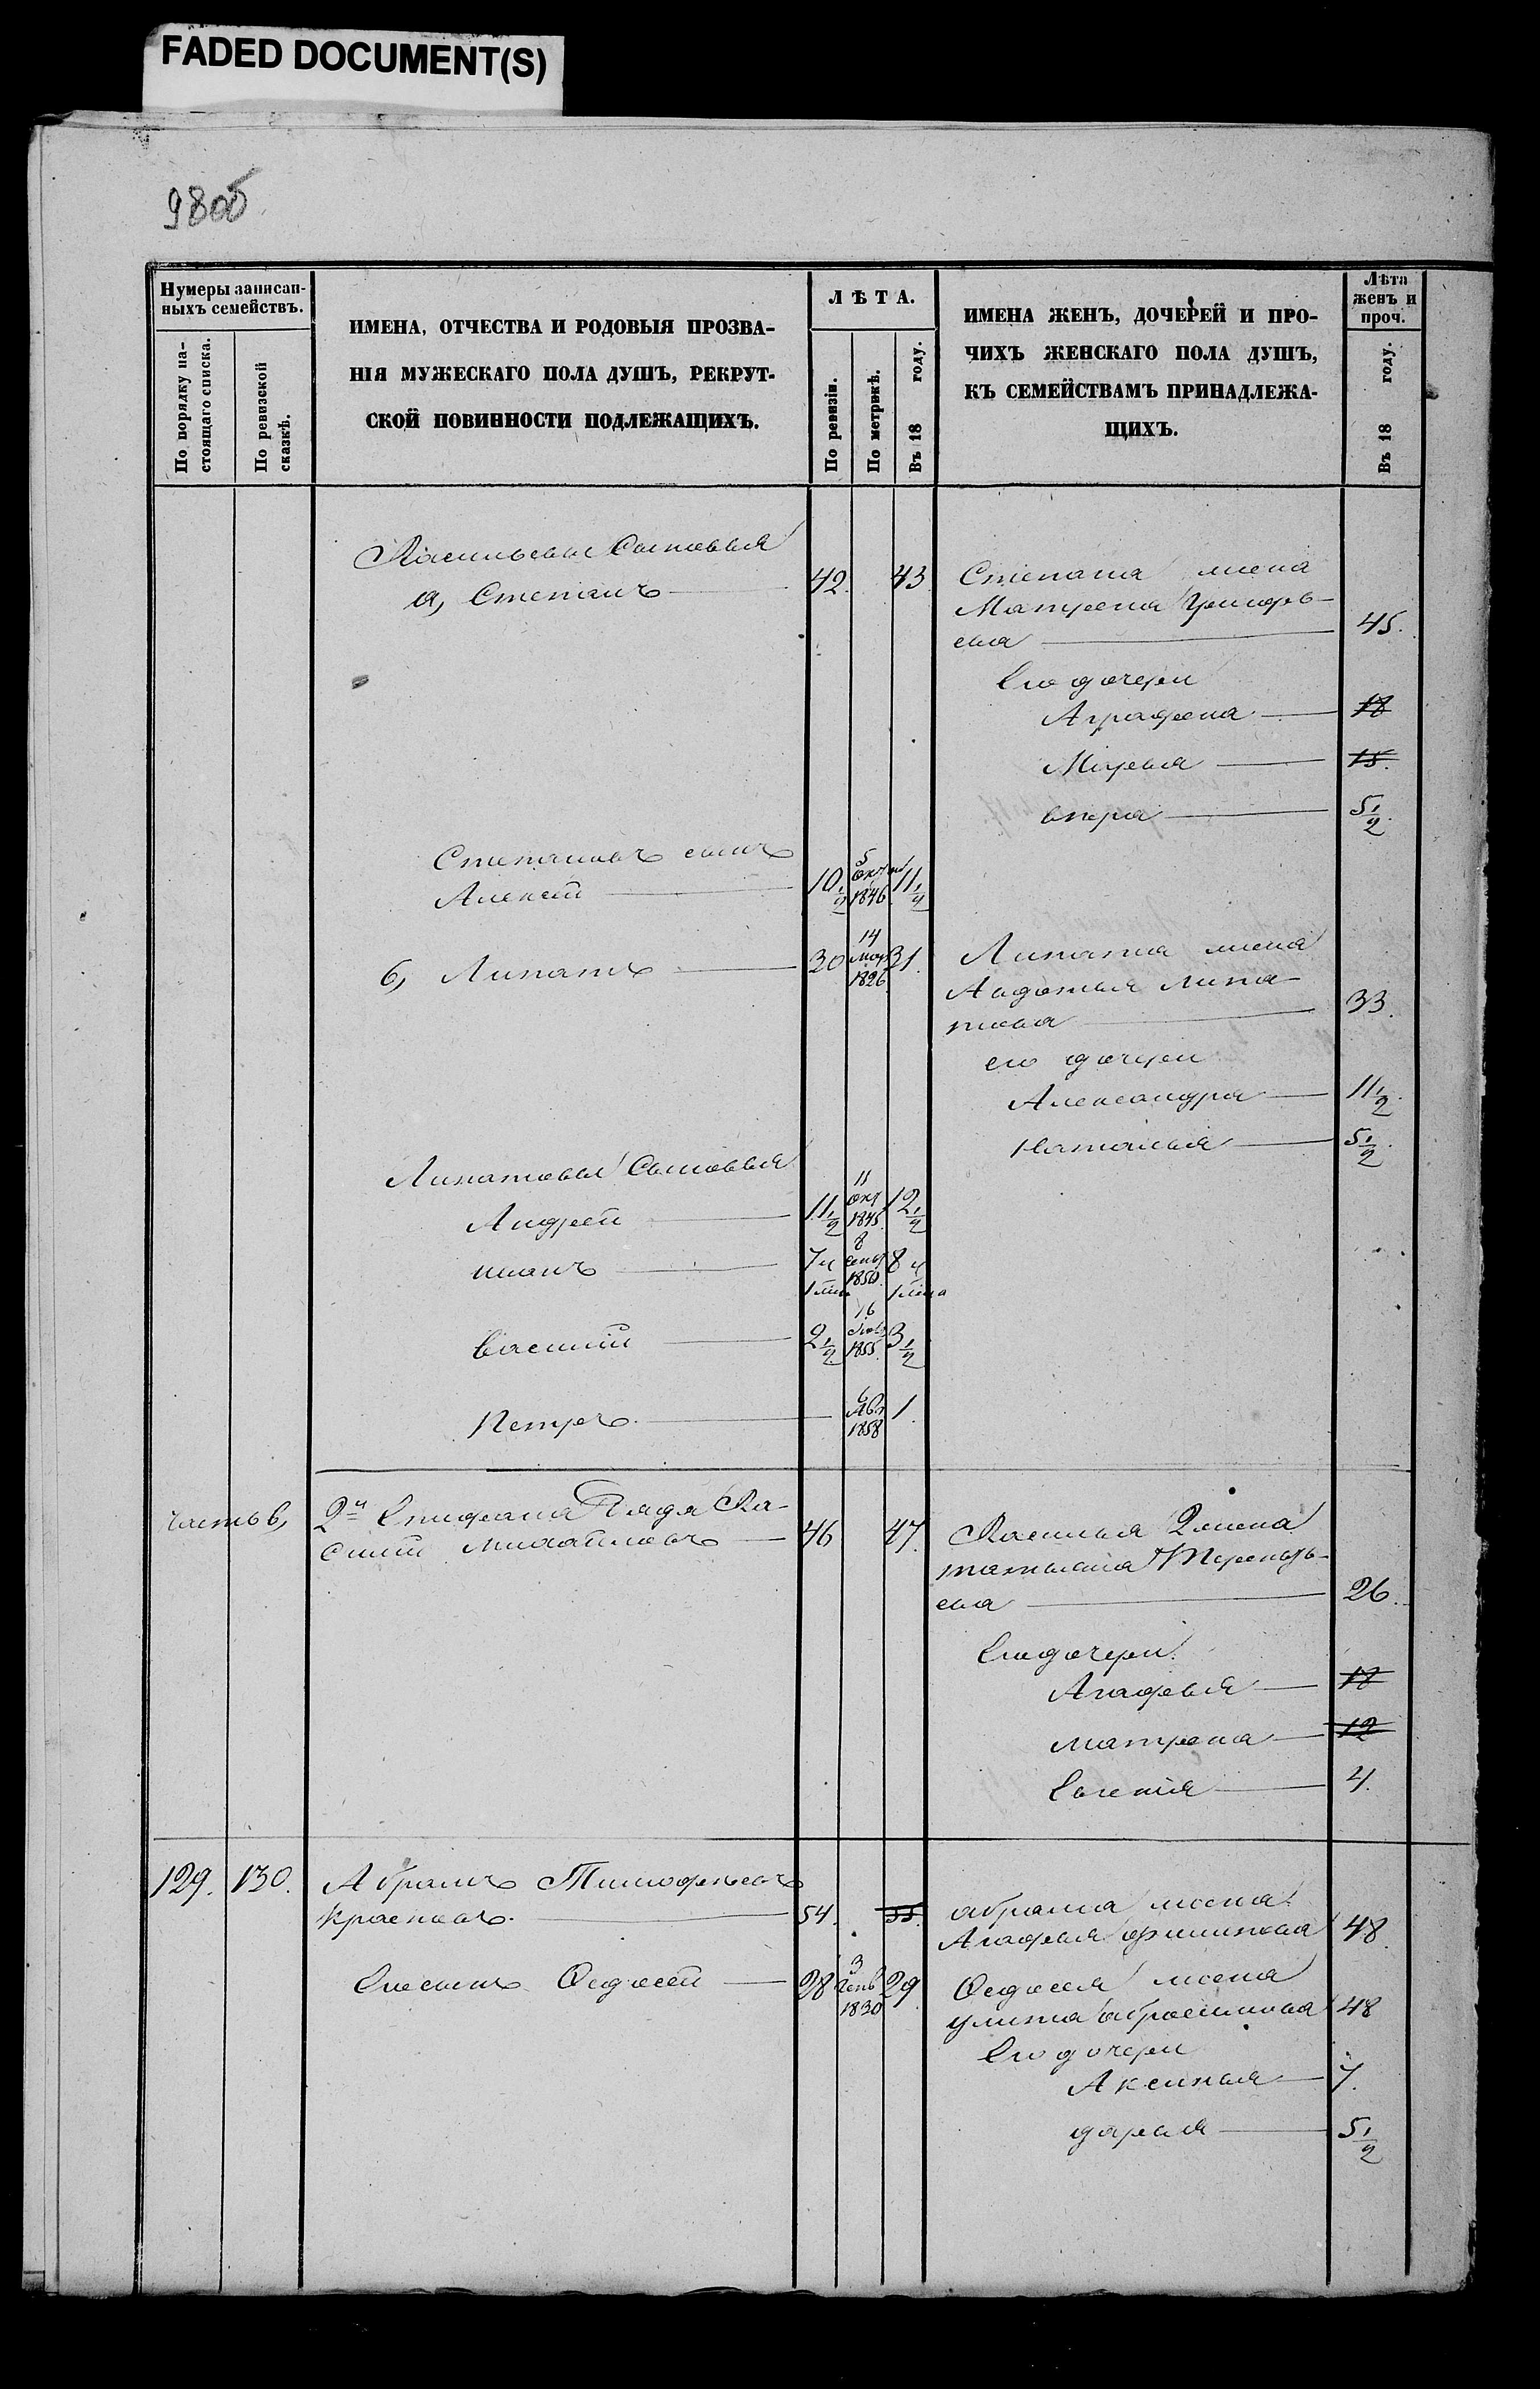 FADED DOCUMENT(S)
98об
Нумеры записан-
ныхъ семействъ.
По порядку на-
стоящаго списка.
По ревизской
сказкѣ.
ИМЕНА, ОТЧЕСТВА И РОДОВЫЯ ПРОЗВА-
НІЯ МУЖЕСКАГО ПОЛА ДУШЪ, РЕКРУТ-
СКОЙ ПОВИННОСТИ ПОДЛЕЖАЩИХЪ.
ЛѢТА.
По ревизіи.
По метрикѣ.
Въ 18 году.
ИМЕНА ЖЕНЪ, ДОЧЕРЕЙ И ПРО-
ЧИХЪ ЖЕНСКАГО ПОЛА ДУШЪ,
КЪ СЕМЕЙСТВАМЪ ПРИНАДЛЕЖА-
ЩИХЪ.
Лѣта
женъ и
проч.
Въ 18 году.
Васильевы Сыновья
а, Степанъ 42. 43
Степана жена
Матрена Григорь-
ева 45.
Его дочери
Аграфена 18
Марья 15.
вѣра 5 1/2
Степановъ сынъ
Алексѣй 10 1/2 5 окт 1846 11 1/2
б, Липатъ 30 14 мар 1826 31.
Липата жена
Авдотья Липа-
това 33.
его дочери
Александра 11 1/2
Наталья 5 1/2
Липатовы Сыновья
Андрей 11 1/2 11 окт 1845 12 1/2
иванъ 7 и 1 мѣс 8 сент 1850 8 и 1 мѣса
Василій 2 1/2 16 1855 3 1/2
Петръ 6 1858 1
часть в, 2й Епифана дядя Ва-
силій Михайловъ 46 47.
Василья 2 жена
татьяна Терентьь-
ева 26.
Его дочери
Агафья 18
матрена 12
Евгенія 4.
129. 130. Абрамъ Тимофѣевъ
Красновъ. 54. 55.
абрама жена
Агафья филипова 48
Его сынъ Федосей 28 3 Генв 1830 29
Федосея жена
улита абросимова 48
Его дочери
Аксинья 7.
дарья 5 1/2